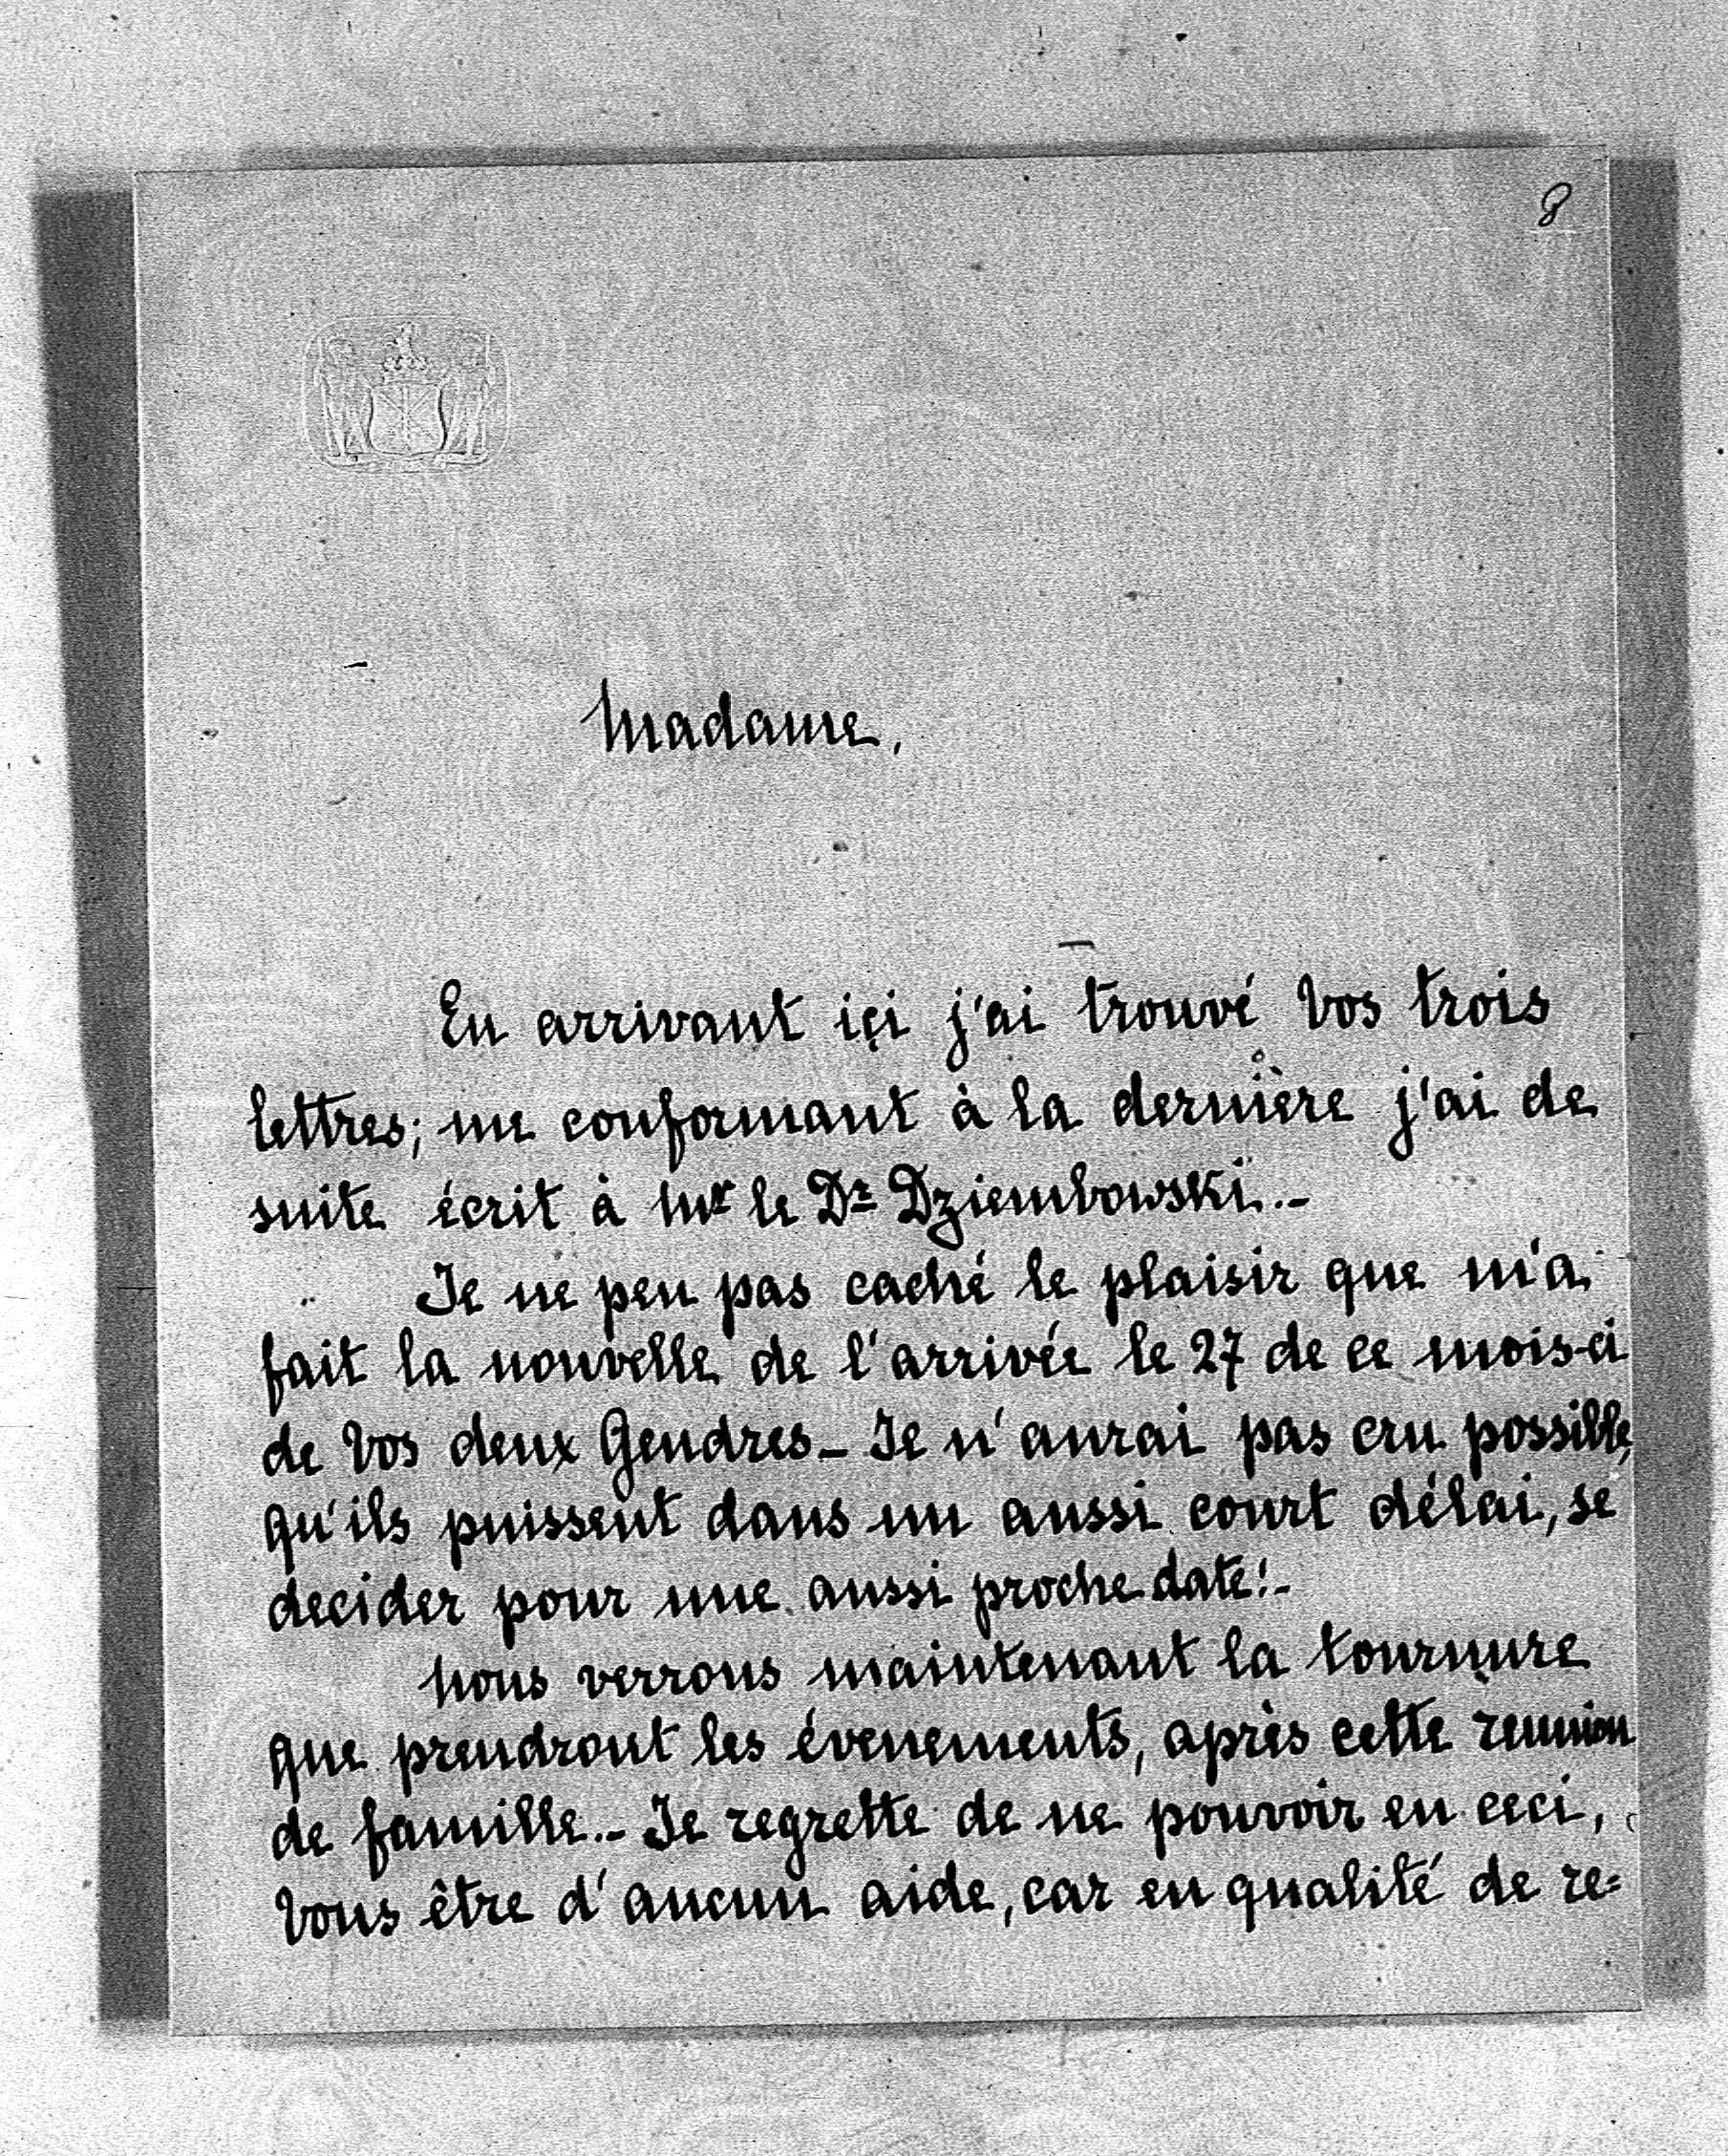 8
Madame,
En arrivant içi j'ai trouvé Vos trois
lettres; me conformant à la dernière j'ai de
suite écrit à Mr le Dr Dziembowski.-
Je ne peu pas caché le plaisir que m'a
fait la nouvelle de l'arrivée le 27 de ce mois-ci
de Vos deux Gendres- Je n'aurai pas cru possible,
qu'ils puissent dans un aussi court délai, se
decider pour une aussi proche date!-
Nous verrons maintenant la tournure
que prendront les évenements, après cette réunion
de famille.- Je regrette de ne pouvoir en ceci,
Vous être d'aucun aide, car en qualité de re=